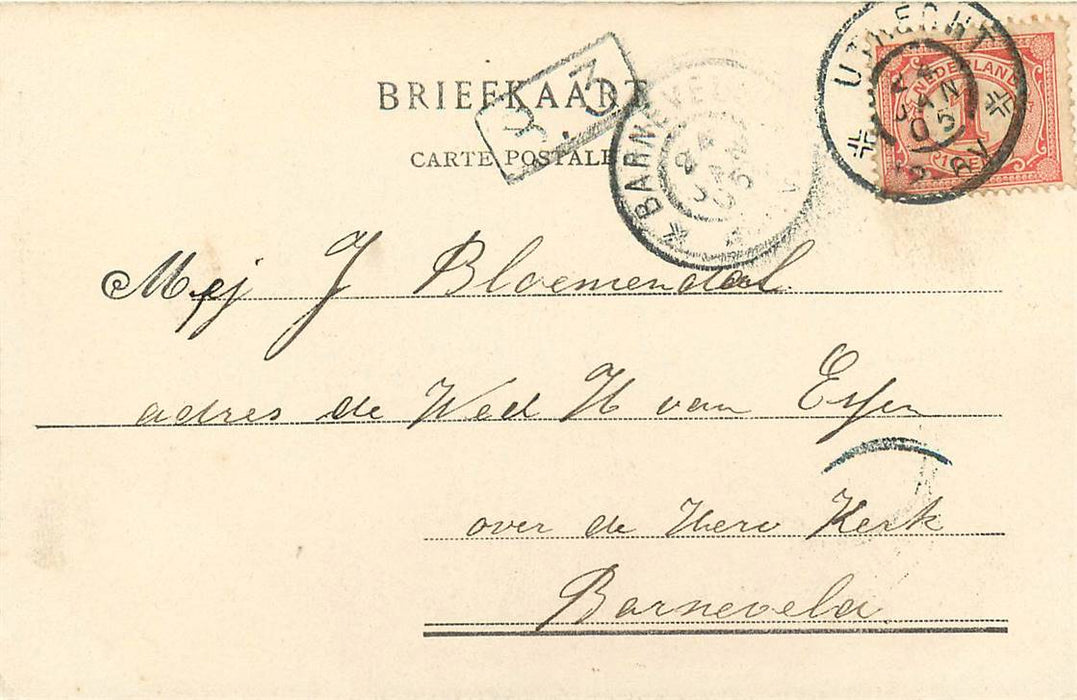 BRIEFKAART
CARTE POSTALE
Y. 3
BARNEVELD
24 JAN 05
UTRECHT
24 JAN 05
NEDERLAND
1
Mej J Bloemendaal
adres de Wed H van Essen
over de Herv Kerk
Barneveld